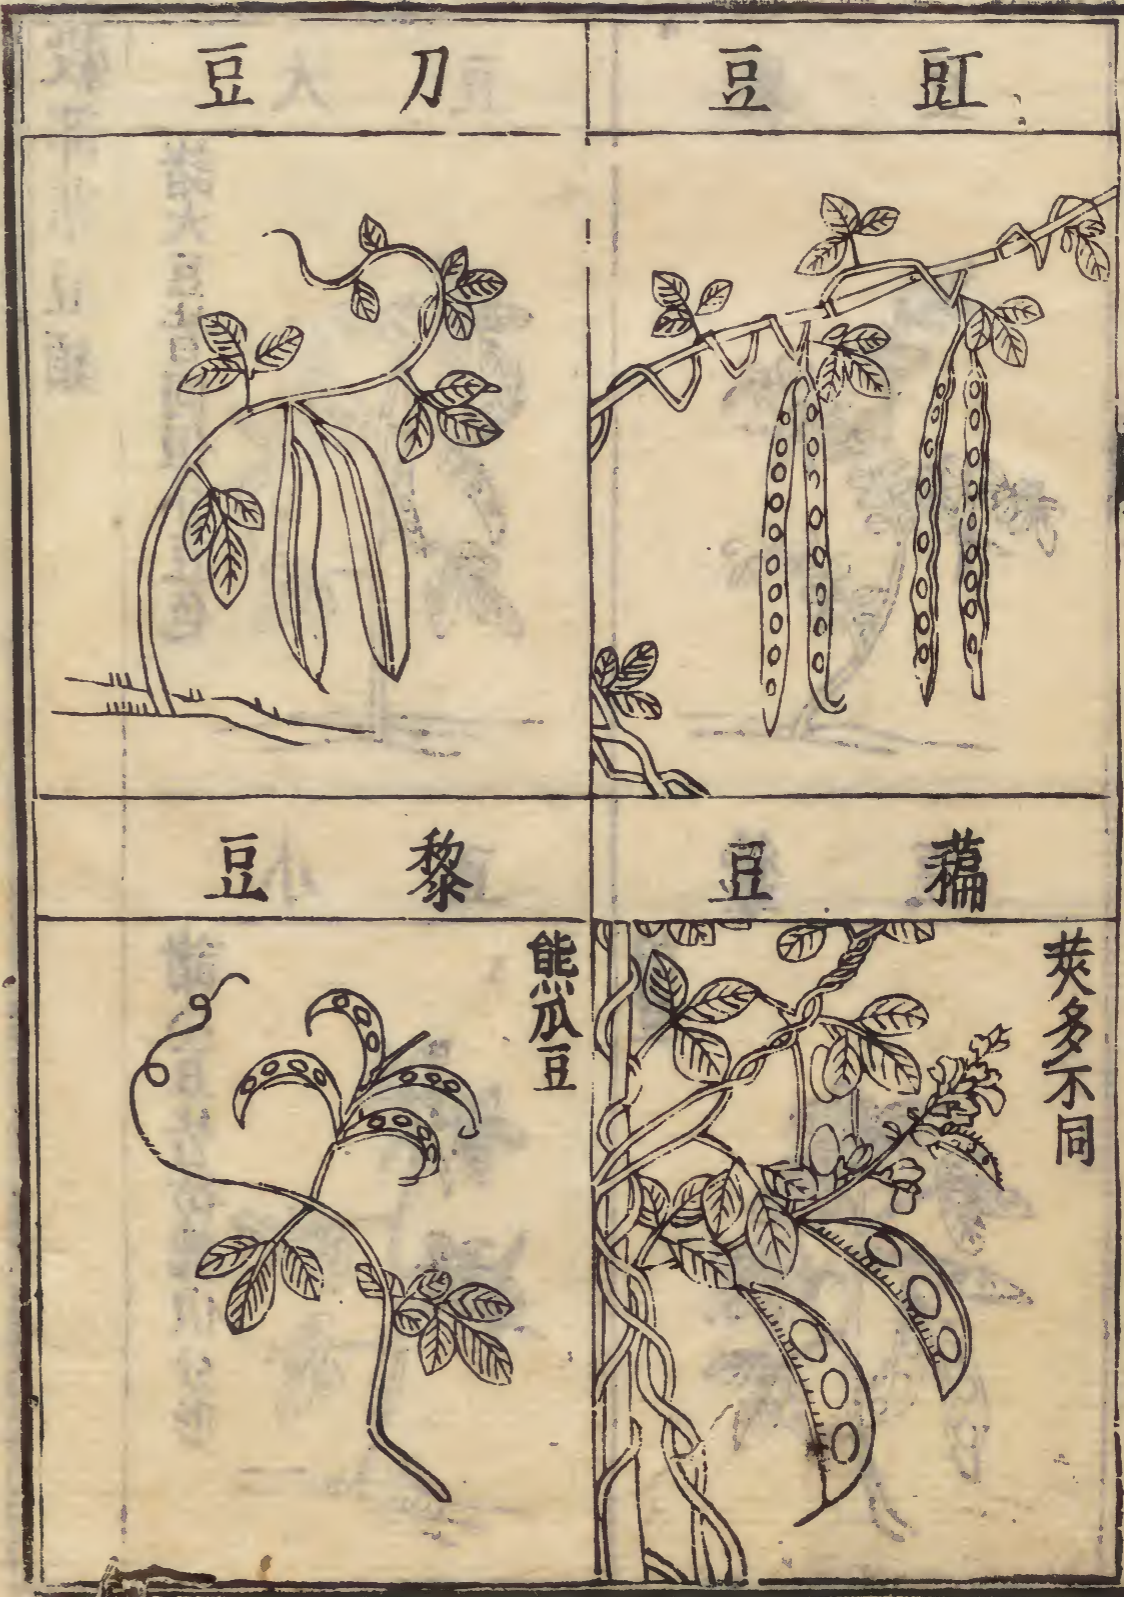 豇豆
刀豆
藊豆
莢多不同
黎豆
熊瓜豆